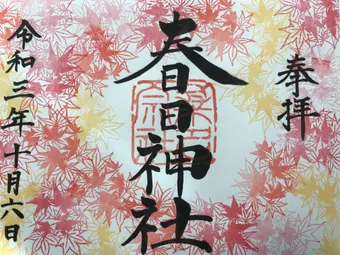 奉拝
春日神社
令和三年十月六日